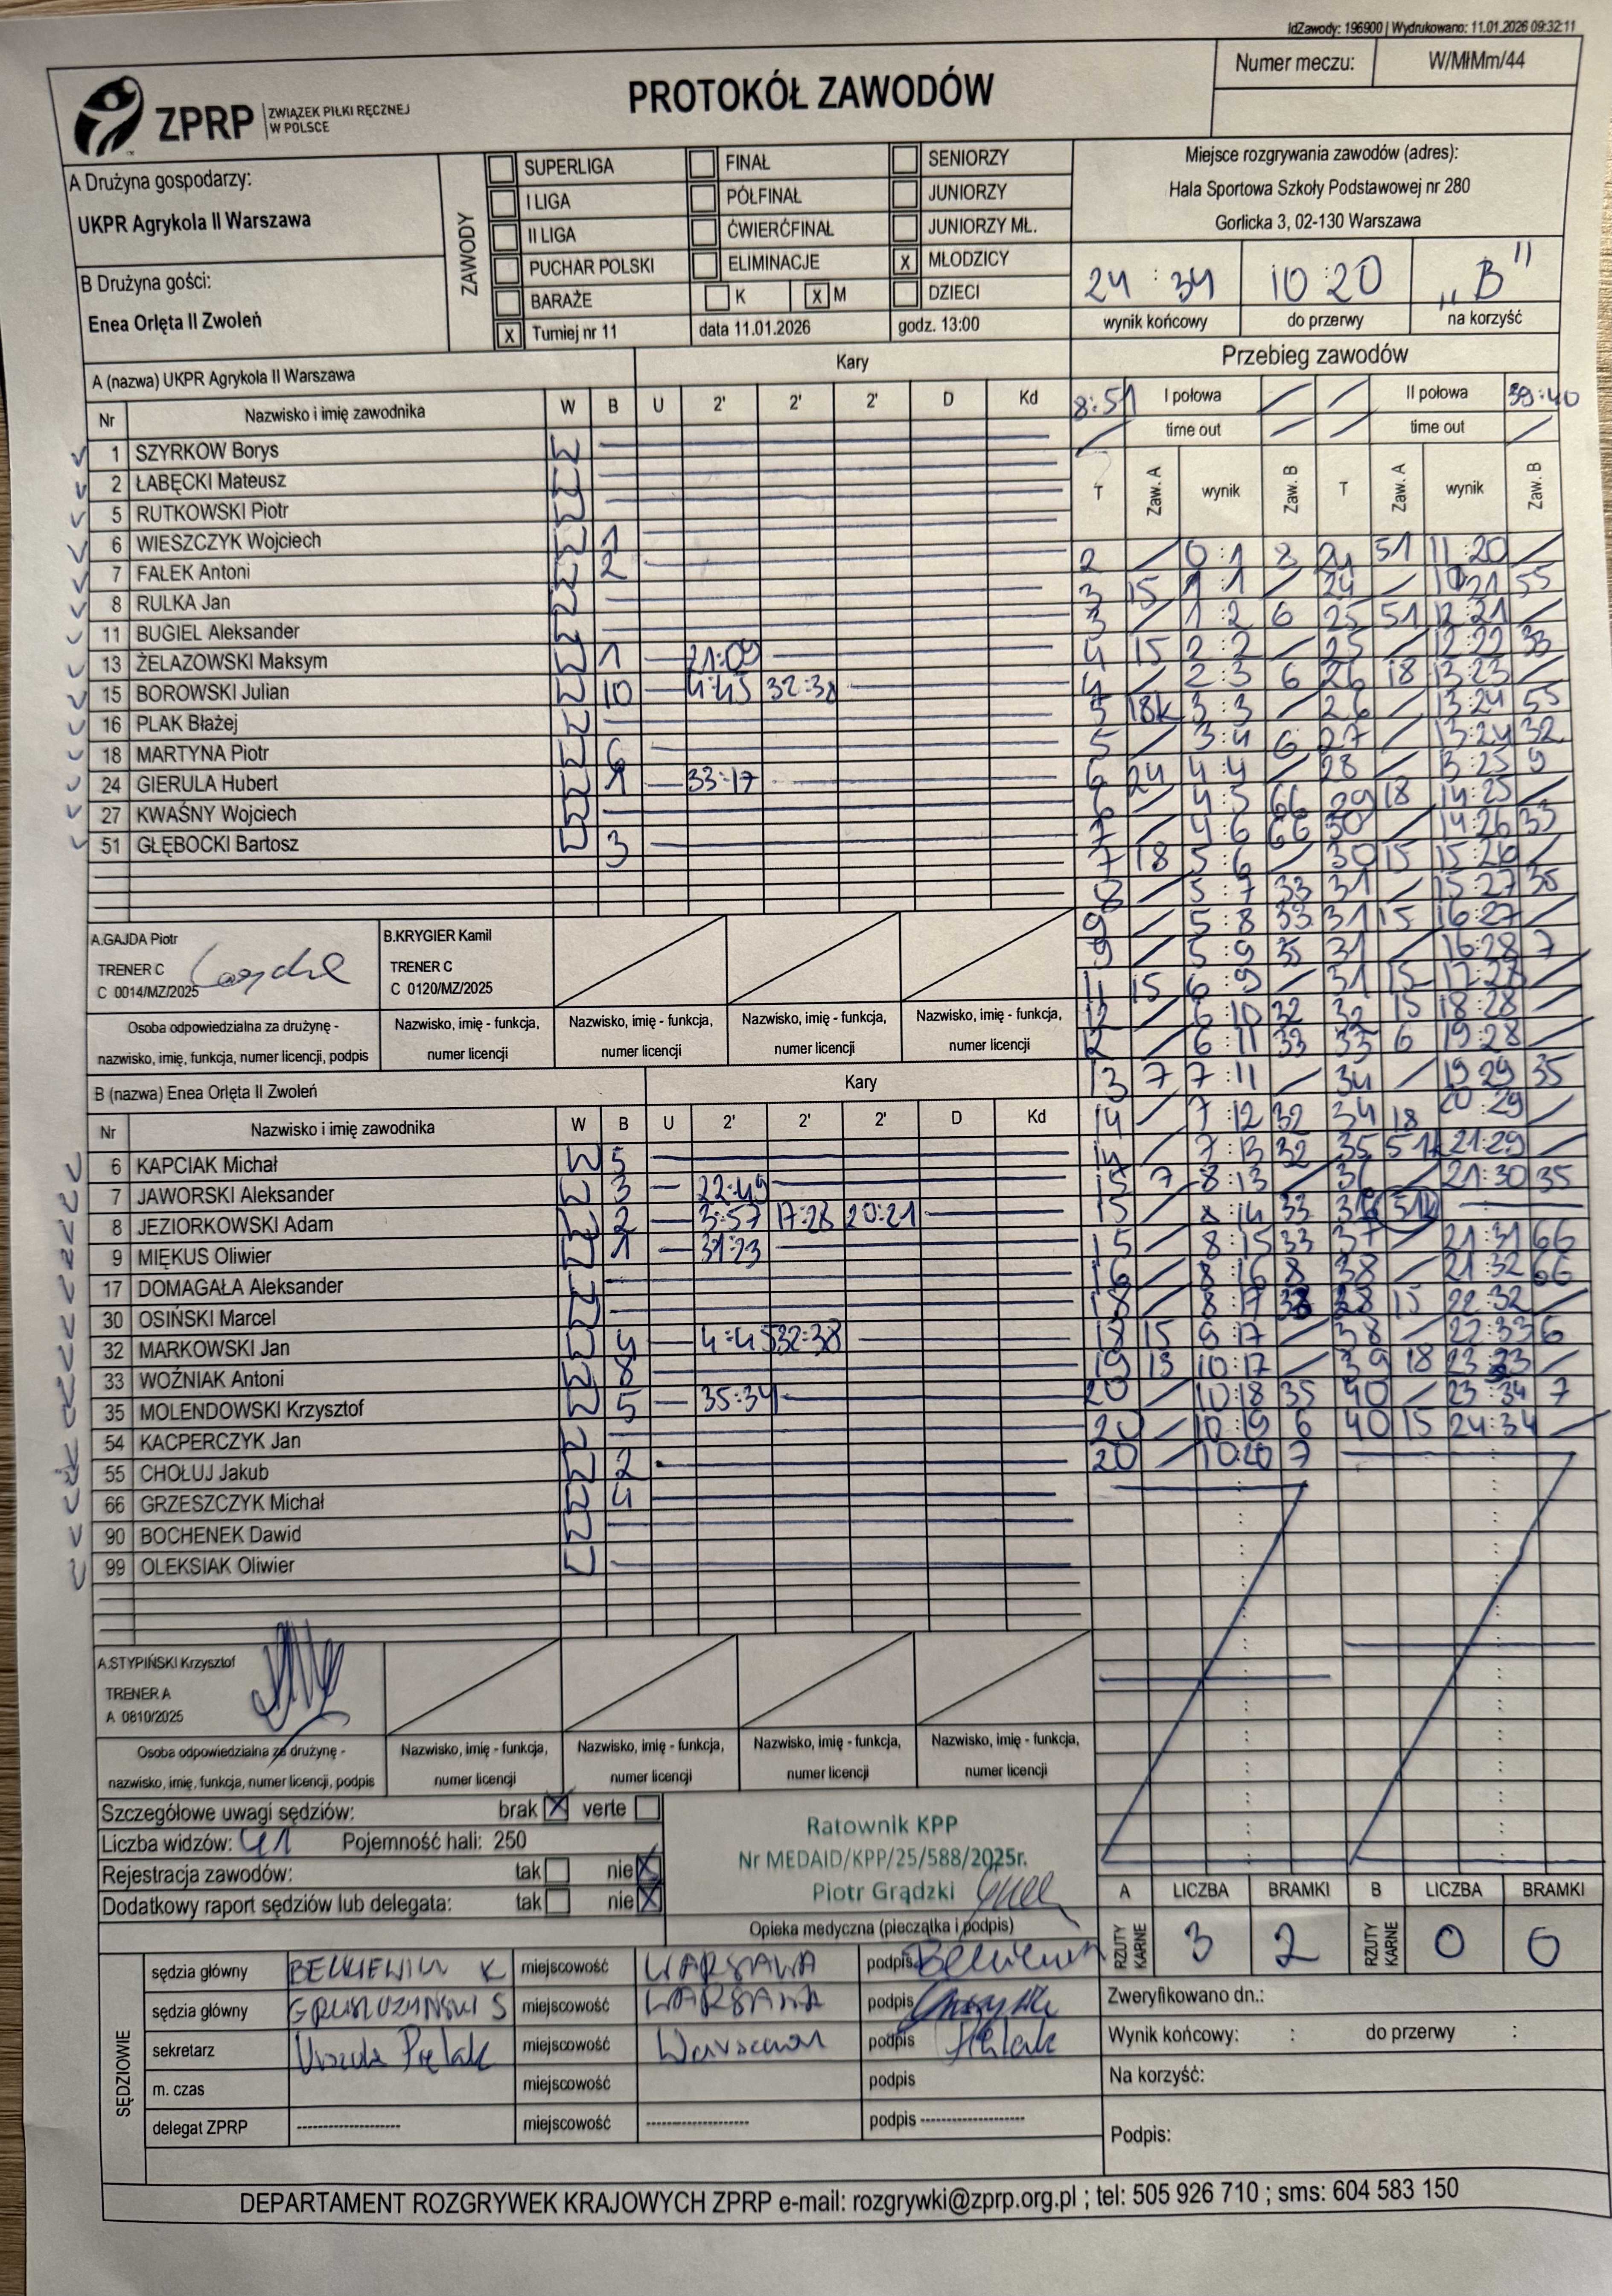 IdZawody: 196900 | Wydrukowano: 11.01.2026 09:32:11
ZPRP ZWIĄZEK PIŁKI RĘCZNEJ W POLSCE
PROTOKÓŁ ZAWODÓW
Numer meczu: W/MłMm/44
A Drużyna gospodarzy:
UKPR Agrykola II Warszawa
B Drużyna gości:
Enea Orlęta II Zwoleń
ZAWODY
SUPERLIGA FINAŁ SENIORZY
I LIGA PÓŁFINAŁ JUNIORZY
II LIGA ĆWIERĆFINAŁ JUNIORZY MŁ.
PUCHAR POLSKI ELIMINACJE X MŁODZICY
BARAŻE K X M DZIECI
X Turniej nr 11 data 11.01.2026 godz. 13:00
Miejsce rozgrywania zawodów (adres):
Hala Sportowa Szkoły Podstawowej nr 280
Gorlicka 3, 02-130 Warszawa
24 : 34 10 : 20 „B"
wynik końcowy do przerwy na korzyść
A (nazwa) UKPR Agrykola II Warszawa Kary
Nr Nazwisko i imię zawodnika W B U 2' 2' 2' D Kd
1 SZYRKOW Borys W
2 ŁABĘCKI Mateusz W
5 RUTKOWSKI Piotr W
6 WIESZCZYK Wojciech W 1
7 FALEK Antoni W 2
8 RULKA Jan W
11 BUGIEL Aleksander W
13 ŻELAZOWSKI Maksym W 1 21:09
15 BOROWSKI Julian W 10 4:45 32:38
16 PLAK Błażej W
18 MARTYNA Piotr W 6
24 GIERULA Hubert W 1 33:17
27 KWAŚNY Wojciech W
51 GŁĘBOCKI Bartosz W 3
A.GAJDA Piotr
TRENER C
C 0014/MZ/2025
B.KRYGIER Kamil
TRENER C
C 0120/MZ/2025
Osoba odpowiedzialna za drużynę -
nazwisko, imię, funkcja, numer licencji, podpis
Nazwisko, imię - funkcja,
numer licencji
Nazwisko, imię - funkcja,
numer licencji
Nazwisko, imię - funkcja,
numer licencji
Nazwisko, imię - funkcja,
numer licencji
B (nazwa) Enea Orlęta II Zwoleń Kary
Nr Nazwisko i imię zawodnika W B U 2' 2' 2' D Kd
6 KAPCIAK Michał W 5
7 JAWORSKI Aleksander W 3 22:49
8 JEZIORKOWSKI Adam W 2 3:57 17:28 20:21
9 MIĘKUS Oliwier W 1 31:23
17 DOMAGAŁA Aleksander W
30 OSIŃSKI Marcel W
32 MARKOWSKI Jan W 4 4:45 32:38
33 WOŹNIAK Antoni W 8
35 MOLENDOWSKI Krzysztof W 5 35:34
54 KACPERCZYK Jan W
55 CHOŁUJ Jakub W 2
66 GRZESZCZYK Michał W 4
90 BOCHENEK Dawid W
99 OLEKSIAK Oliwier W
A.STYPIŃSKI Krzysztof
TRENER A
A 0810/2025
Osoba odpowiedzialna za drużynę -
nazwisko, imię, funkcja, numer licencji, podpis
Nazwisko, imię - funkcja,
numer licencji
Nazwisko, imię - funkcja,
numer licencji
Nazwisko, imię - funkcja,
numer licencji
Nazwisko, imię - funkcja,
numer licencji
Przebieg zawodów
8:51 I połowa II połowa 39:40
time out time out
T Zaw. A wynik Zaw. B T Zaw. A wynik Zaw. B
2 0:1 8 24 51 11:20
3 15 1:1 24 21 55
3 1:2 6 25 51 12:21
4 15 2:2 25 12:22 33
4 2:3 6 26 18 13:23
5 18k 3:3 26 13:24 55
5 3:4 6 27 13:24 32
6 24 4:4 28 13:25 9
6 4:5 66 29 18 14:25
7 4:6 66 30 14:26 33
7 18 5:6 30 15 15:26
8 5:7 33 31 15:27 35
9 5:8 33 31 15 16:27
9 5:9 35 31 16:28 7
11 15 6:9 31 15 17:28
12 6:10 32 32 15 18:28
12 6:11 33 33 6 19:28
13 7 7:11 34 19 29 35
14 7:12 32 34 18 20:29
14 7:13 32 35 51k 21:29
15 7 8:13 36 21:30 35
15 8:14 33 36 51k
15 8:15 33 37 21:31 66
16 8:16 8 38 21:32 66
18 8:17 33 38 15 22:32
18 15 9:17 38 22:33 6
19 13 10:17 39 18 23:33
20 10:18 35 40 23:34 7
20 10:19 6 40 15 24:34
20 10:20 7
Szczegółowe uwagi sędziów: brak X verte
Liczba widzów: 41 Pojemność hali: 250
Rejestracja zawodów: tak nie X
Dodatkowy raport sędziów lub delegata: tak nie X
Ratownik KPP
Nr MEDAID/KPP/25/588/2025r.
Piotr Grądzki
Opieka medyczna (pieczątka i podpis)
A LICZBA BRAMKI B LICZBA BRAMKI
RZUTY KARNE 3 2 RZUTY KARNE 0 0
SĘDZIOWIE
sędzia główny K miejscowość WARSAWA podpis
sędzia główny S miejscowość WARSAWA podpis
sekretarz Urszula Piętak miejscowość Warszawa podpis
m. czas miejscowość podpis
delegat ZPRP -------------------- miejscowość -------------------- podpis --------------------
Zweryfikowano dn.:
Wynik końcowy: : do przerwy :
Na korzyść:
Podpis:
DEPARTAMENT ROZGRYWEK KRAJOWYCH ZPRP e-mail: rozgrywki@zprp.org.pl ; tel: 505 926 710 ; sms: 604 583 150